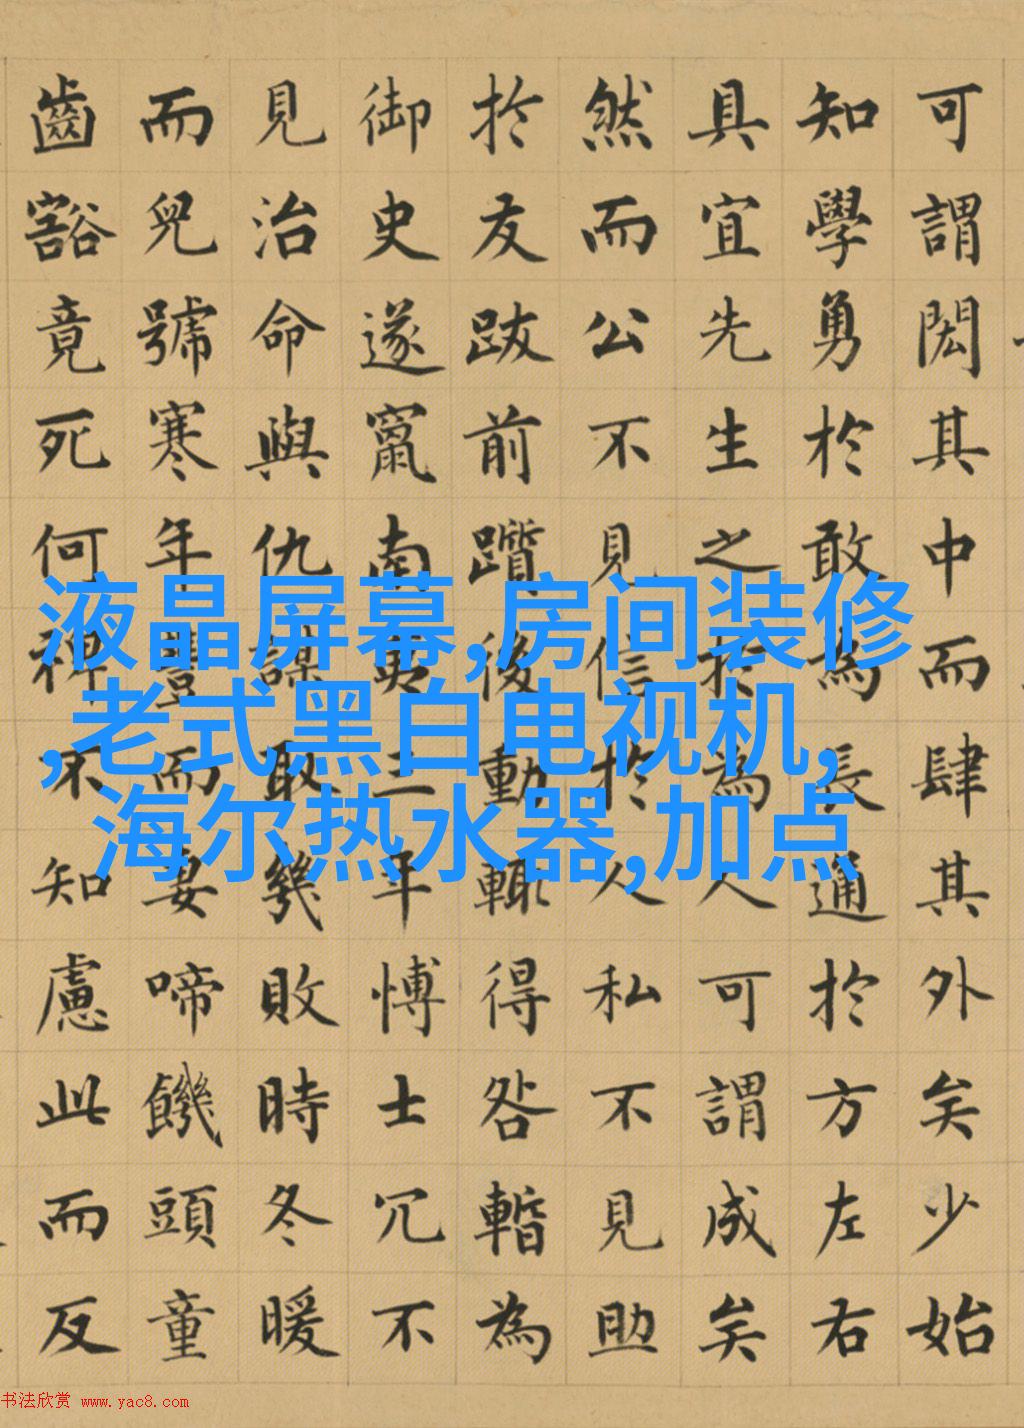 可謂閎其中而肆其外矣少始
知學勇於敢為長通於方左右
具宜先生之於為人可謂成矣
然而公不見信於人私不見助
於友跋前躓後動輒得咎暫為
御史遂竄南夷三年愽士冗不
見治命與仇謀取幾敗時冬暖
而兒號寒年豐而妻啼饑頭童
齒豁竟死何裨不知慮此而反
液晶屏幕,房间装修
,老式黑白电视机,
海尔热水器,加点
书法欣赏 www.yac8.com